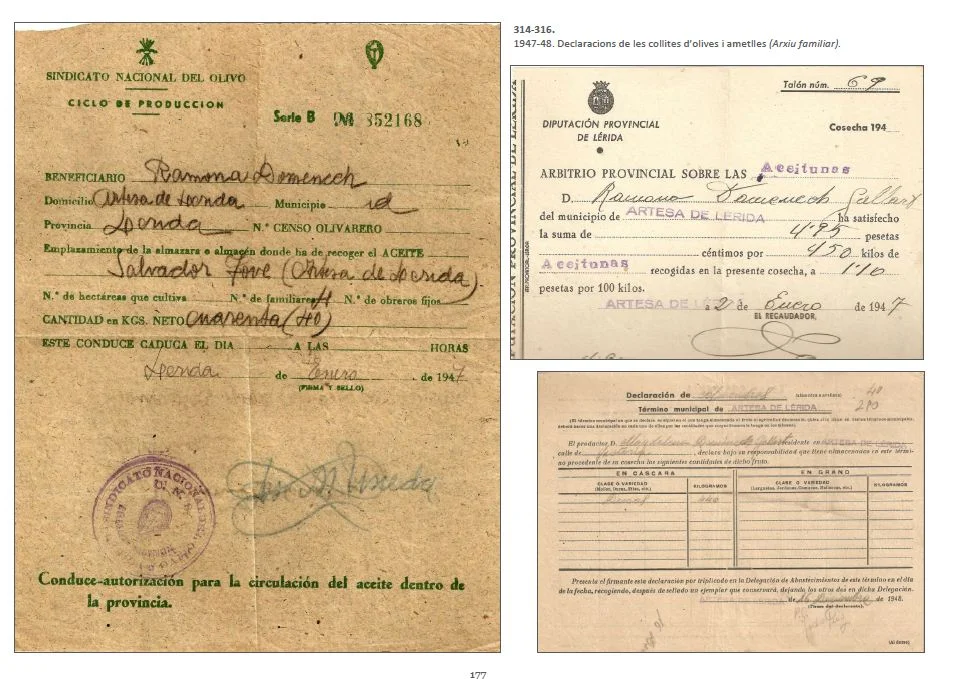 314-316.
1947-48. Declaracions de les collites d'olives i ametlles (Arxiu familiar).
SINDICATO NACIONAL DEL OLIVO
CICLO DE PRODUCCION
Serie B 352168
BENEFICIARIO Ramona Domenech
Domicilio Artesa de Lerida Municipio id
Provincia Lerida N.° CENSO OLIVARERO
Emplazamiento de la almazara o almacén donde ha de recoger el ACEITE
Salvador Jové (Artesa de Lerida)
N.° de hectáreas que cultiva N.° de familiares 4 N.° de obreros fijos
CANTIDAD en KGS. NETO cuarenta (40)
ESTE CONDUCE CADUCA EL DIA A LAS HORAS
Lerida de Enero de 1947
(FIRMA Y SELLO)
SINDICATO NACIONAL
Conduce-autorización para la circulación del aceite dentro de
la provincia.
Talón núm. 69
DIPUTACIÓN PROVINCIAL
DE LÉRIDA
Cosecha 194
ARBITRIO PROVINCIAL SOBRE LAS Aceitunas
D. Ramona Domenech Gallart
del municipio de ARTESA DE LERIDA ha satisfecho
la suma de 4'95 pesetas
céntimos por 450 kilos de
Aceitunas recogidas en la presente cosecha, a 1'10
pesetas por 100 kilos.
ARTESA DE LÉRIDA a 2 de Enero de 1947
EL RECAUDADOR,
Declaración de
40
280
Término municipal de ARTESA DE LÉRIDA
El productor D. Magdalena residente en ARTESA DE LÉRIDA
calle de , declara bajo su responsabilidad que tiene almacenadas en este térmi-
no procedente de su cosecha las siguientes cantidades de dicho fruto.
EN CASCARA EN GRANO
CLASE O VARIEDAD KILOGRAMOS CLASE O VARIEDAD KILOGRAMOS
Presenta el firmante esta declaración por triplicado en la Delegación de Abastecimientos de este término en el día
de la fecha, recogiendo, después de sellado un ejemplar que conservará, dejando los otros dos en dicha Delegación.
ARTESA DE LÉRIDA de 16 Diciembre de 1948.
(Firma del declarante)
(Al dorso)
177